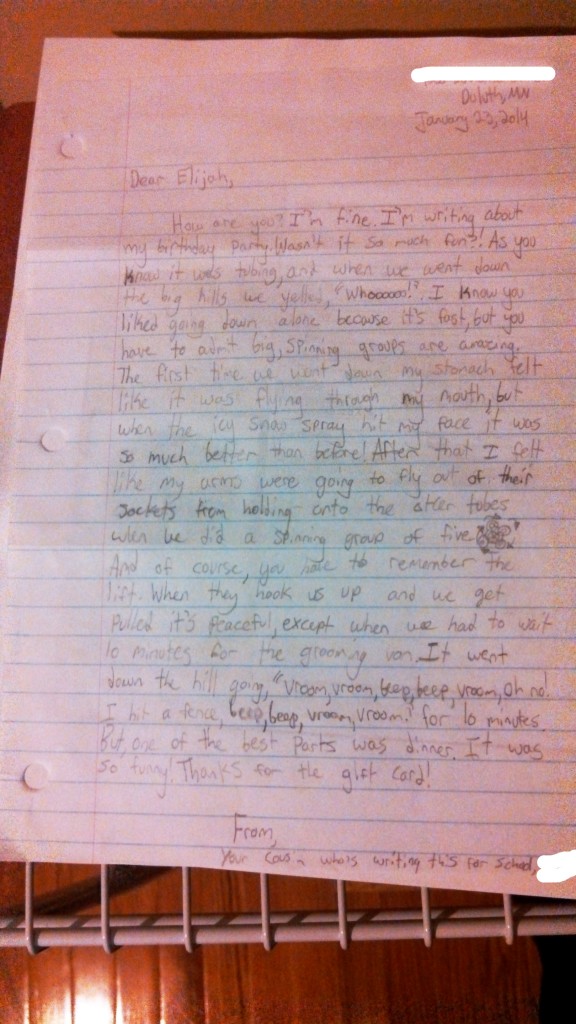 Duluth, MN
January 23, 2014
Dear Elijah,
How are you? I'm fine. I'm writing about
my birthday party. Wasn't it so much fun?! As you
know it was tubing, and when we went down
the big hills we yelled, "Whoooooo!". I know you
liked going down alone because it's fast, but you
have to admit big, spinning groups are amazing.
The first time we went down my stomach felt
like it was flying through my mouth, but
when the icy snow spray hit my face it was
so much better than before! After that I felt
like my arms were going to fly out of their
sockets from holding onto the other tubes
when we did a spinning group of five
And of course, you have to remember the
lift. When they hook us up and we get
pulled it's peaceful, except when we had to wait
10 minutes for the grooming van. It went
down the hill going, "Vroom, vroom, beep, beep, vroom, oh no!
I hit a fence, beep, beep, vroom, vroom!" for 10 minutes.
But, one of the best parts was dinner. It was
so funny! Thanks for the gift card!
From,
Your cousin whois writing this for school,